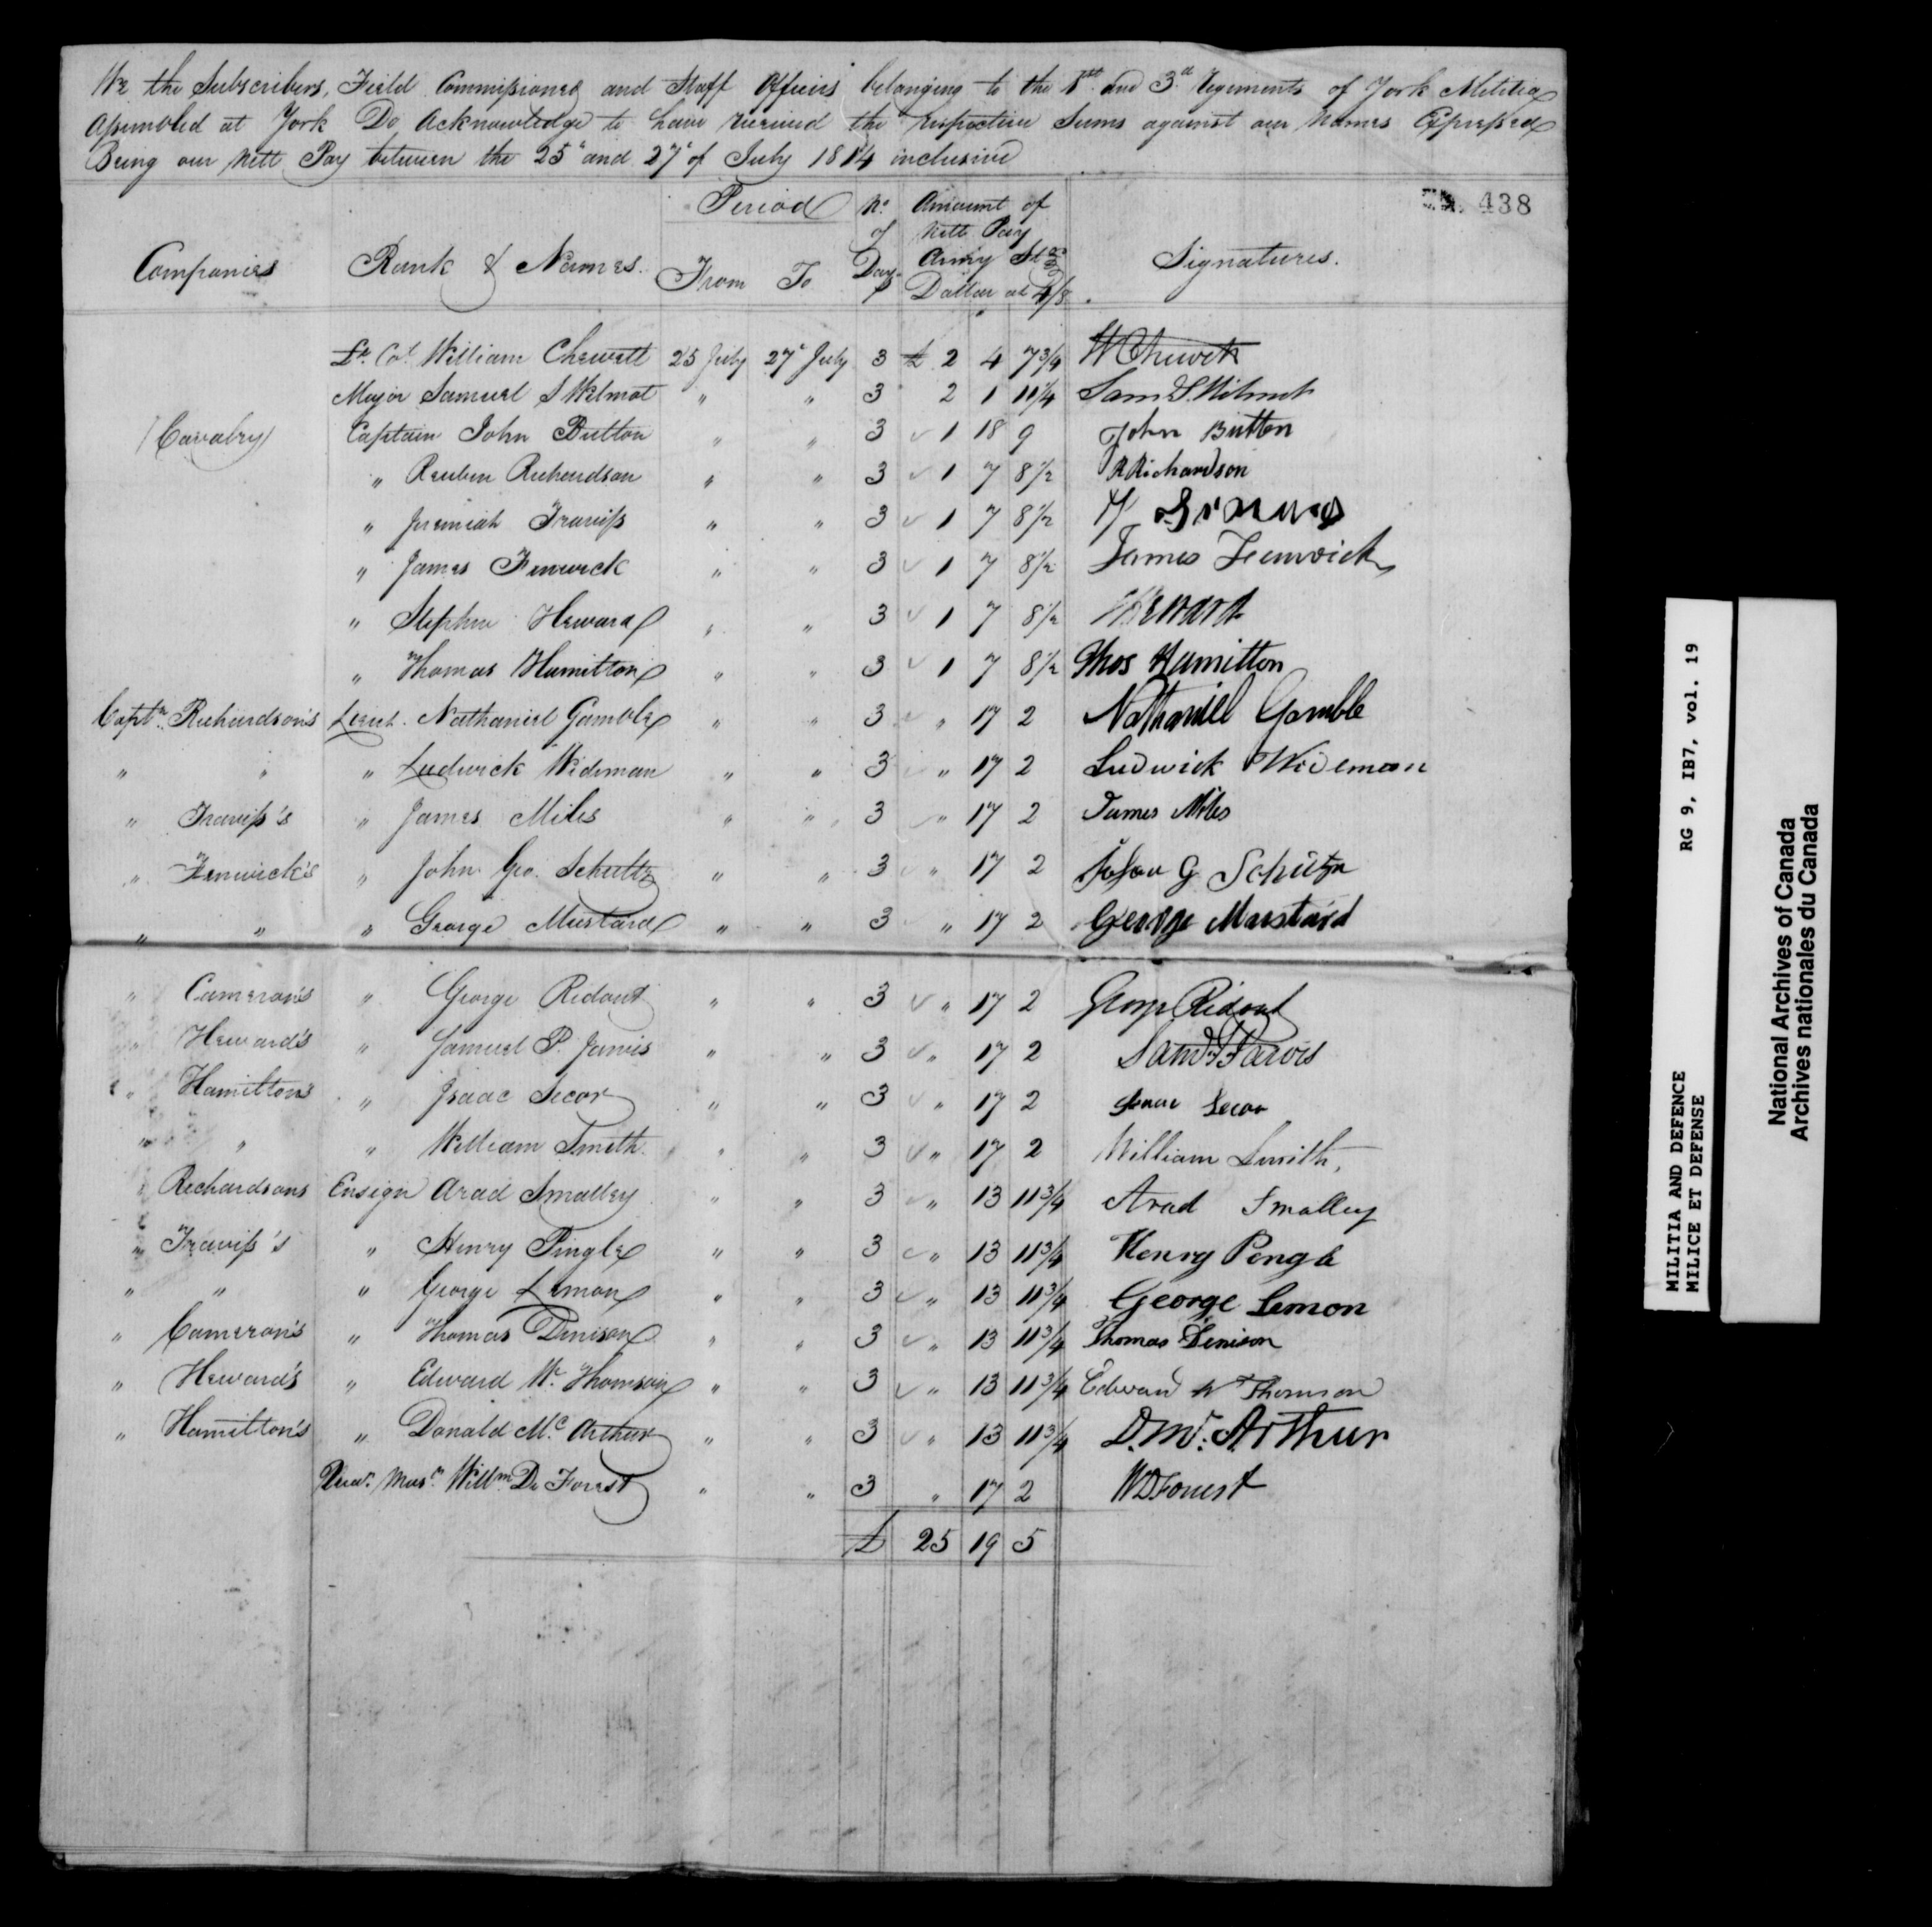 We the Subscribers, Field Commissioned and Staff Officers belonging to the 1st and 3d Regiments of York Militia
Assembled at York Do Acknowledge to have received the respective Sums against our Names Expressed
Being our Nett Pay between the 25th and 27th of July 1814 inclusive
438
Companies Rank & Names. Period From To No. of Days Amount of Nett Pay Army Dollar at 4/8 Signatures.
Lt. Col. William Chewett 25 July 27th July 3 £ 2 4 7 3/4 W Chewett
Major Samuel S Wilmot " " 3 2 1 11 1/4 Saml S. Wilmot
Cavalry Captain John Button " " 3 ✓ 1 18 9 John Button
" Reuben Richardson " " 3 ✓ 1 7 8 1/2 R Richardson
" Jeremiah Traviss " " 3 ✓ 1 7 8 1/2
" James Fenwick " " 3 ✓ 1 7 8 1/2 James Fenwick
" Stephen Heward " " 3 ✓ 1 7 8 1/2 Heward
" Thomas Hamilton " " 3 ✓ 1 7 8 1/2 Thos Hamilton
Captn. Richardson's Lieut. Nathaniel Gamble " " 3 ✓ " 17 2 Nathaniel Gamble
" " " Ludwick Wideman " " 3 ✓ " 17 2 Ludwick Wideman
" Traviss's " James Miles " " 3 ✓ " 17 2 James Miles
" Fenwick's " John Geo. Schultz " " 3 ✓ " 17 2 John G Schütz
" " " George Mustard " " 3 " 17 2 George Mustard
" Cameron's " George Ridout " " 3 ✓ " 17 2 George Ridout
" Heward's " Samuel P. Jarvis " " 3 ✓ " 17 2 Saml P Jarvis
" Hamilton's " Isaac Secor " " 3 ✓ " 17 2 Isaac Secor
" " " William Smith " " 3 ✓ " 17 2 William Smith
Richardsons Ensign Arad Smalley " " 3 ✓ " 13 11 3/4 Arad Smalley
" Traviss's " Henry Pingle " " 3 ✓ " 13 11 3/4 Henry Pengle
" " " George Lemon " " 3 ✓ " 13 11 3/4 George Lemon
" Cameron's " Thomas Denison " " 3 ✓ " 13 11 3/4 Thomas Denison
" Heward's " Edward W. Thomson " " 3 ✓ " 13 11 3/4 Edward W Thomson
" Hamilton's " Donald Mc. Arthur " " 3 ✓ " 13 11 3/4 D. Mc. Arthur
Quar. Masr. Willm. De Forest " " 3 " 17 2 W D Forrest
£ 25 19 5
MILITIA AND DEFENCE RG 9, IB7, vol. 19
MILICE ET DEFENSE
National Archives of Canada
Archives nationales du Canada